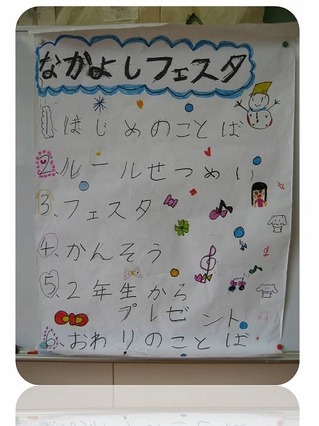 なかよしフェスタ
1、はじめのことば
2、ルールせつめい
3、フェスタ
4、かんそう
5、2年生から
プレゼント
6、おわりのことば